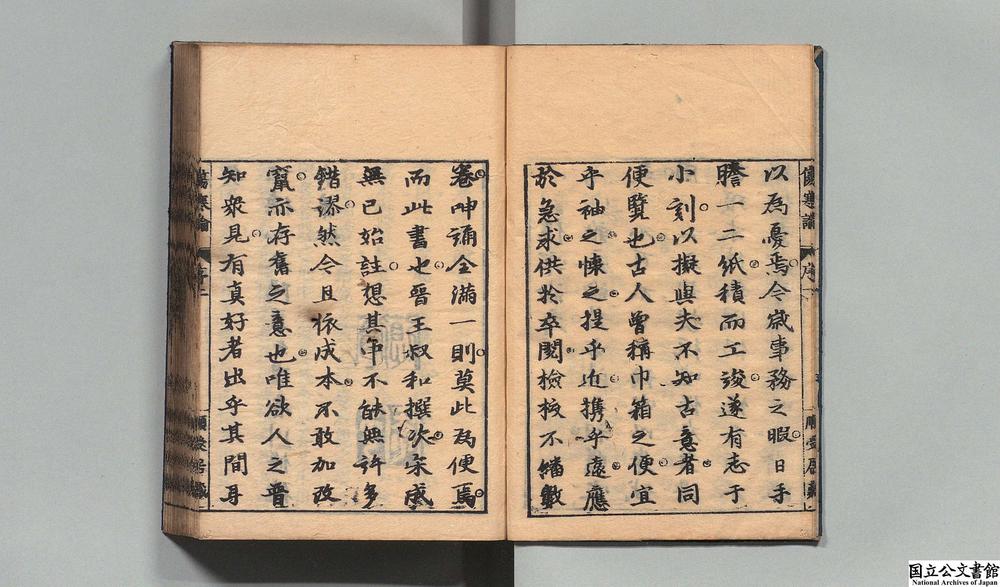 以為憂焉今歳事務之暇日手
謄一二紙積而工竣遂有志于
小刻以擬與夫不知古意者同
便覽也古人曾稱巾箱之便宜
乎袖之懐之提乎近携乎遠應
於急求供於卒閲檢挍不繙數
傷寒論
序一
卷呻誦全滿一則莫此為便焉
而此書也晋王叔和撰次宋成
無已始註想其中不能無許多
錯謬然今且依成本不敢加改
竄亦存舊之意也唯欲人之普
知衆見有真好者出乎其間身
傷寒論
序二
国立公文書館
National Archives of Japan